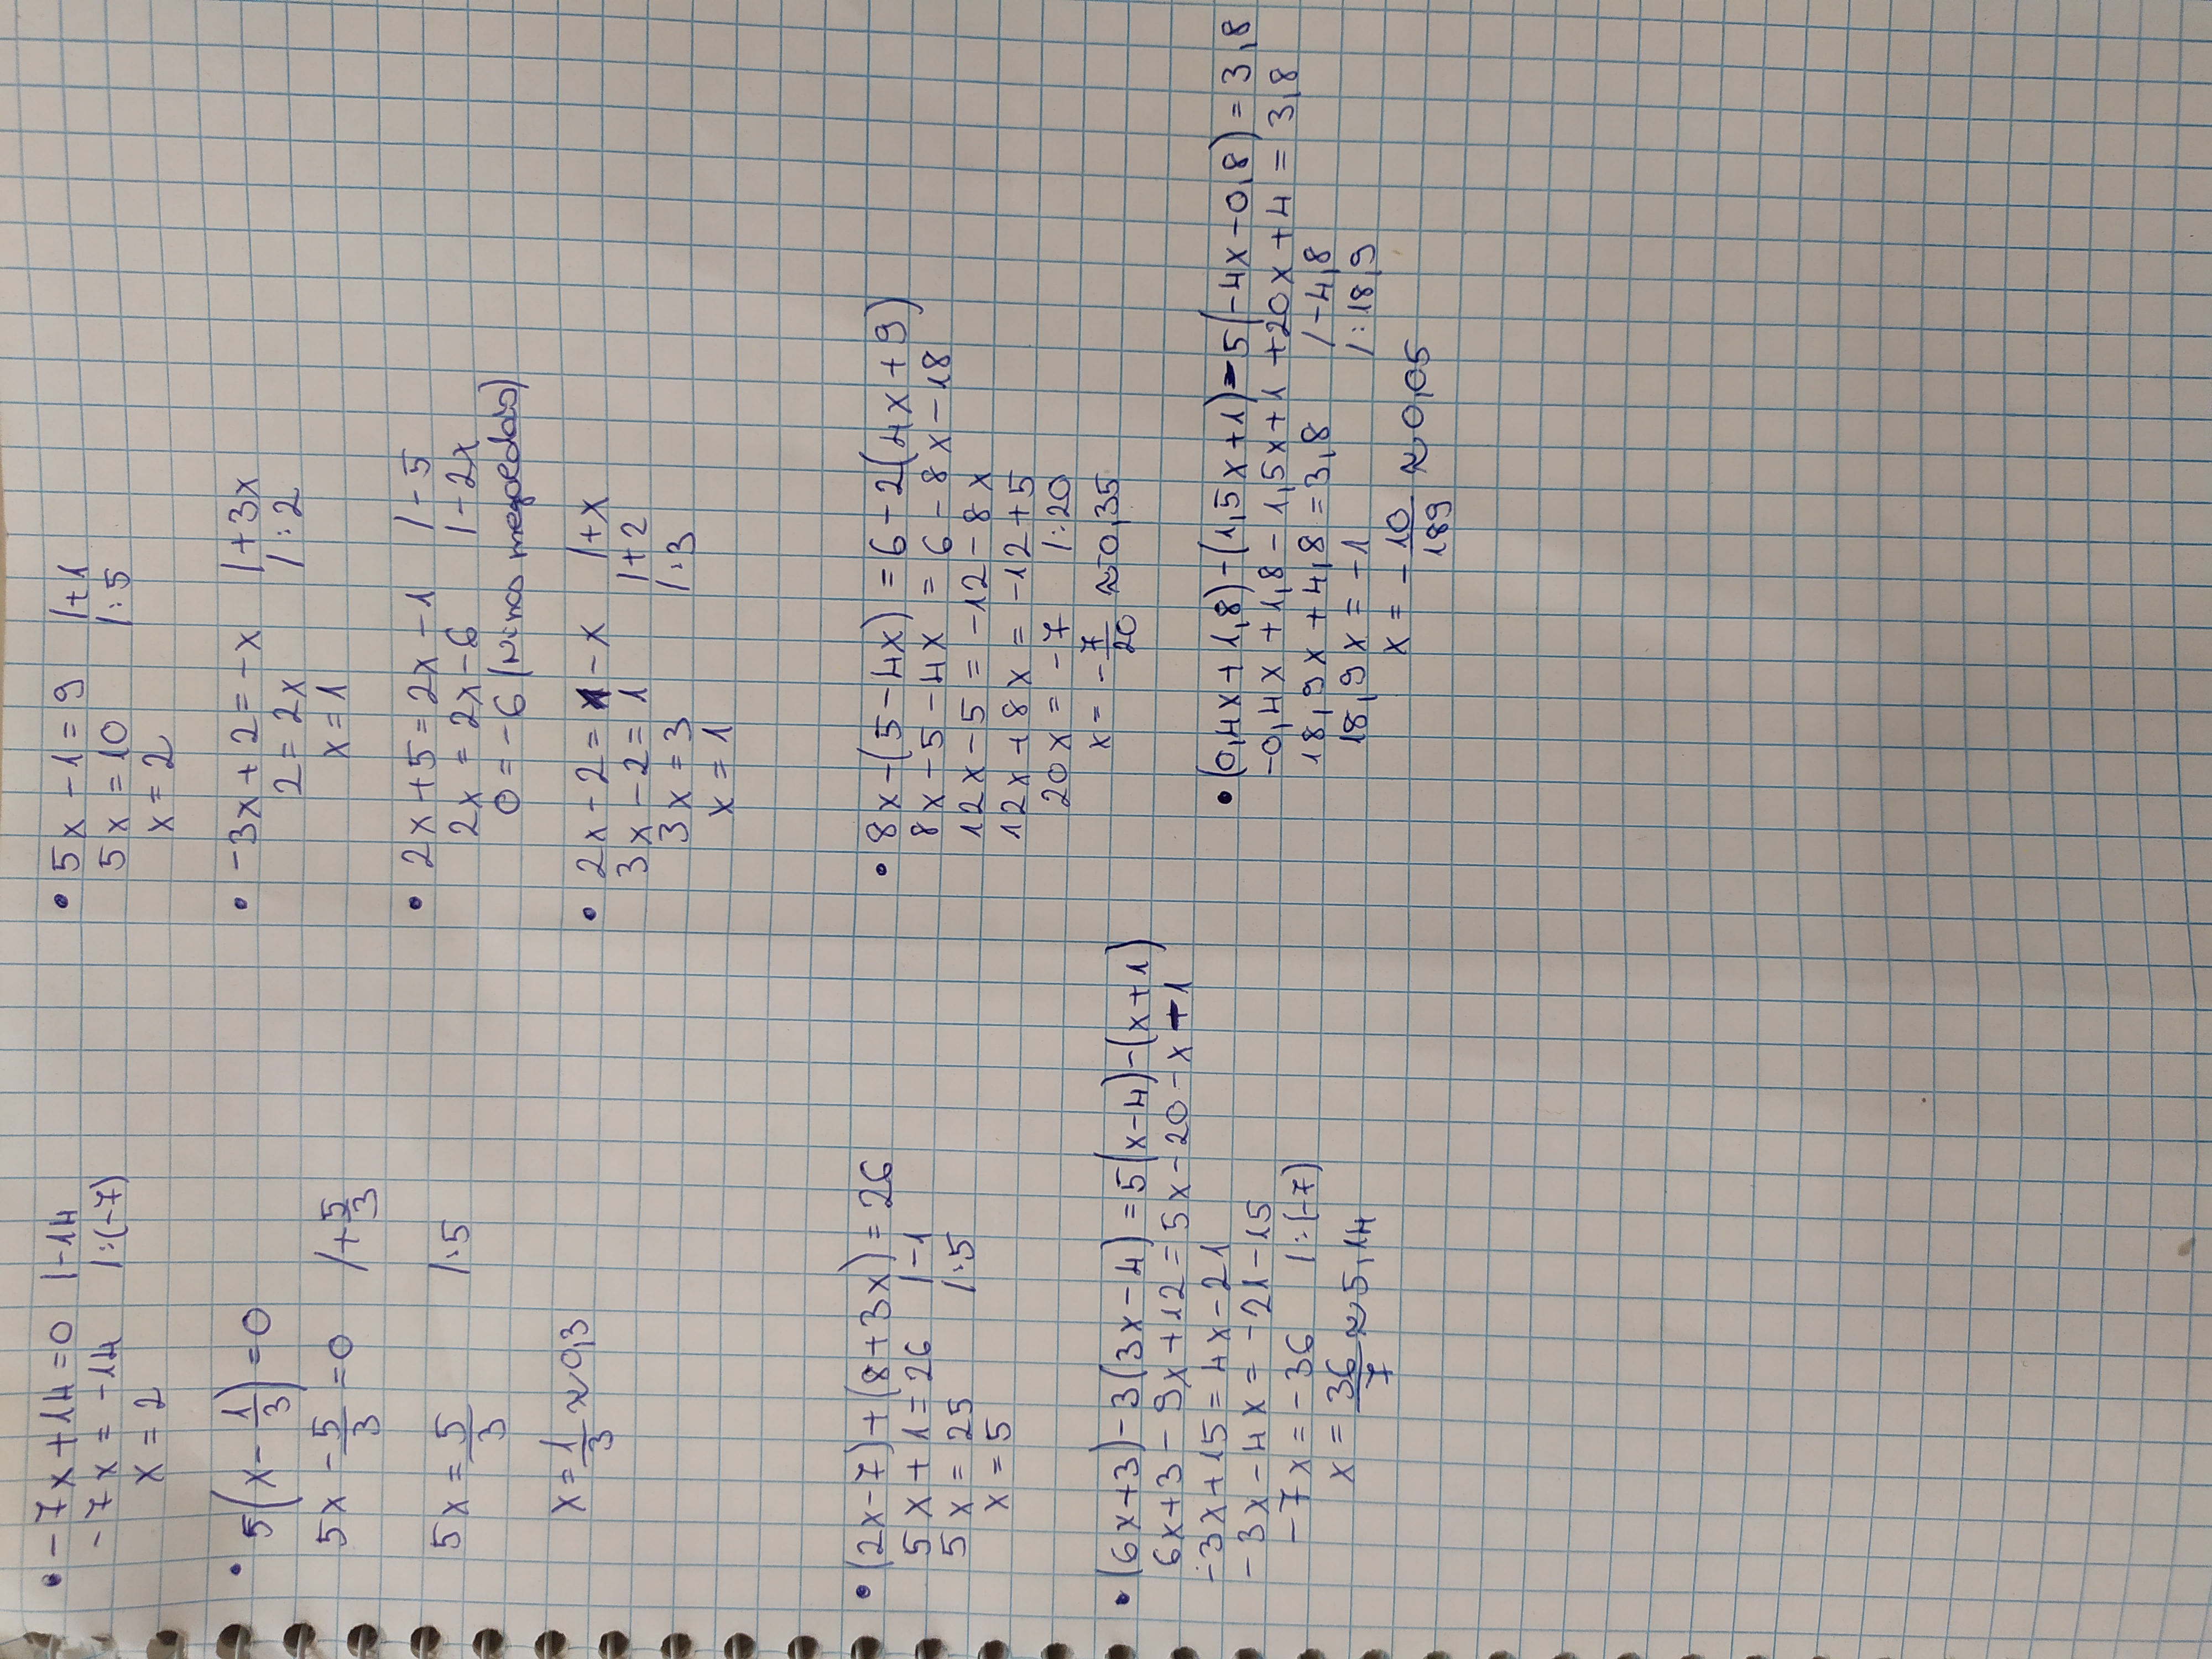 • -7x+14=0 /-14
-7x=-14 /:(-7)
x=2
• 5(x-1/3)=0
5x-5/3=0 /+5/3
5x=5/3 /:5
x=1/3≈0,3
• (2x-7)+(8+3x)=26
5x+1=26 /-1
5x=25 /:5
x=5
• (6x+3)-3(3x-4)=5(x-4)-(x+1)
6x+3-9x+12=5x-20-x-1
-3x+15=4x-21
-3x-4x=-21-15
-7x=-36 /:(-7)
x=36/7≈5,14
• 5x-1=9 /+1
5x=10 /:5
x=2
• -3x+2=-x /+3x
2=2x /:2
x=1
• 2x+5=2x-1 /-5
2x=2x-6 /-2x
0=-6
• 2x-2=1-x /+x
3x-2=1 /+2
3x=3 /:3
x=1
• 8x-(5-4x)=6-2(4x+9)
8x-5-4x=6-8x-18
12x-5=-12-8x
12x+8x=-12+5
20x=-7 /:20
x=-7/20≈0,35
• (0,4x+1,8)-(1,5x+1)-5(-4x-0,8)=3,8
-0,4x+1,8-1,5x+1+20x+4=3,8
18,9x+4,8=3,8 /-4,8
18,9x=-1 /:18,9
x=-10/189≈0,05